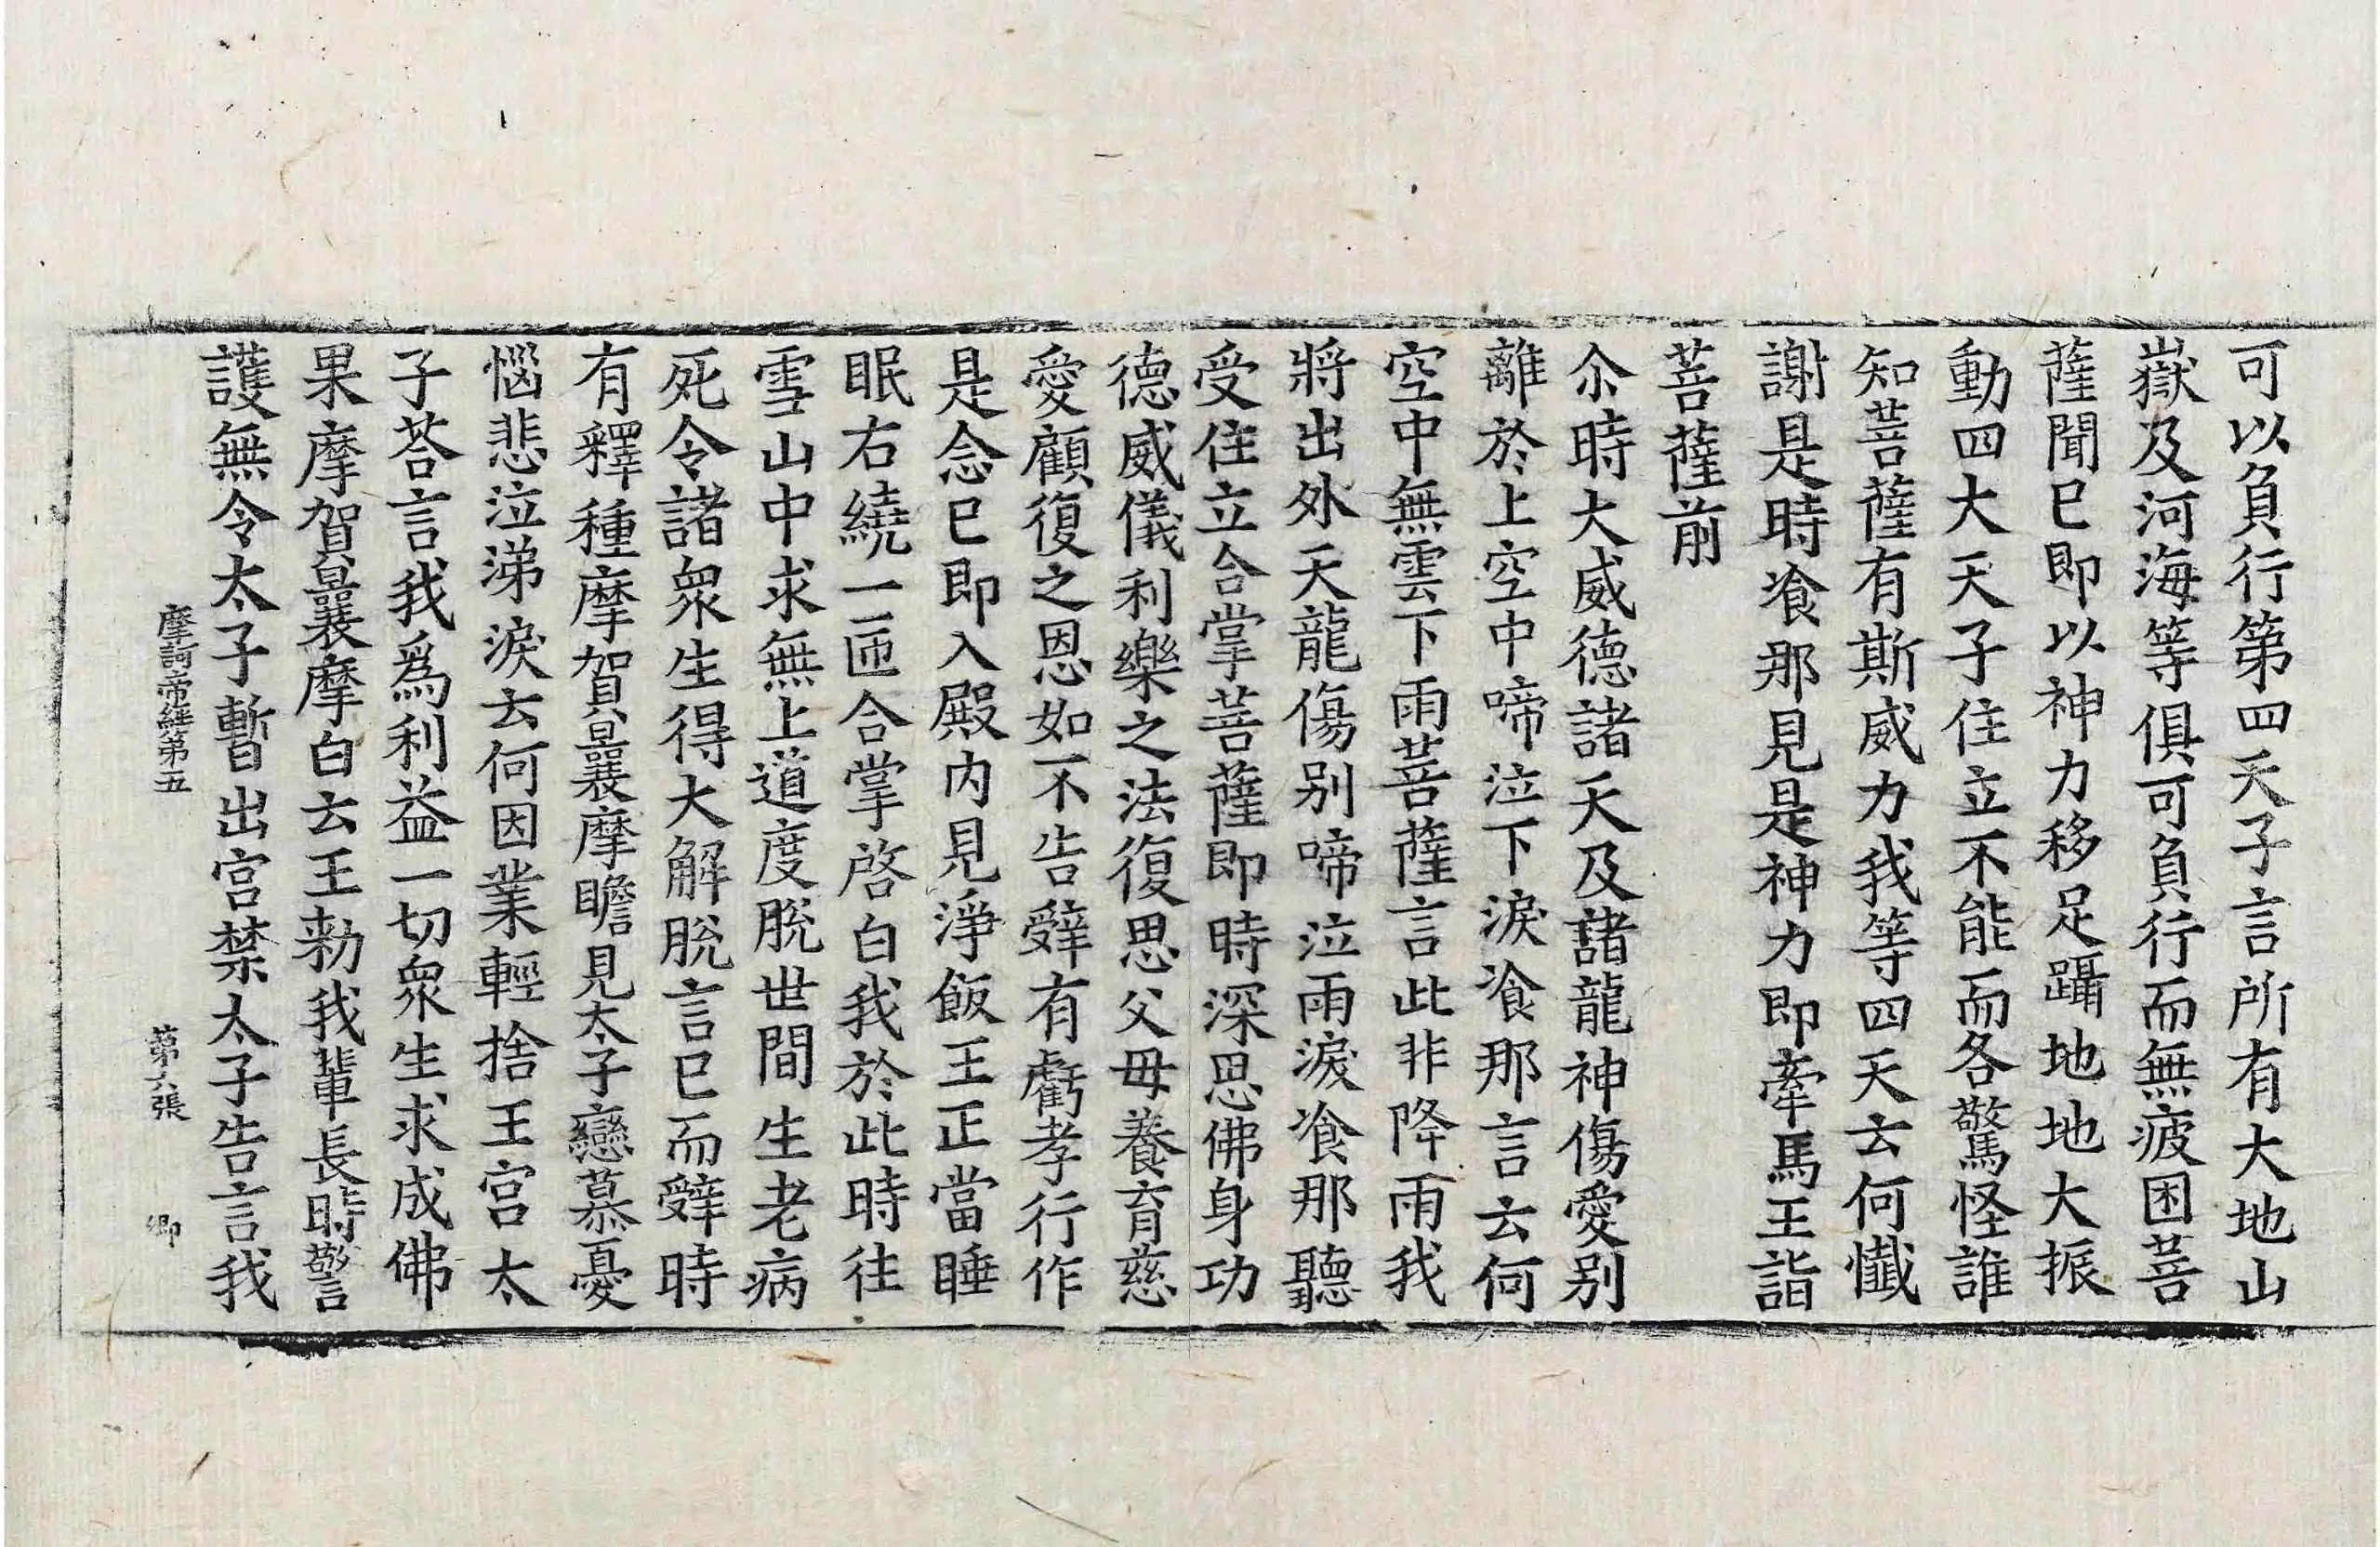 可以負行第四天子言所有大地山
嶽及河海等俱可負行而無疲困菩
薩聞已即以神力移足躡地地大振
動四大天子住立不能而各驚怪誰
知菩薩有斯威力我等四天云何懺
謝是時飡那見是神力即牽馬王詣
菩薩前
尒時大威德諸天及諸龍神傷愛別
離於上空中啼泣下淚飡那言云何
空中無雲下雨菩薩言此非降雨我
將出外天龍傷別啼泣雨淚飡那聽
受住立合掌菩薩即時深思佛身功
德威儀利樂之法復思父母養育慈
愛顧復之恩如不告辤有虧孝行作
是念已即入殿內見淨飯王正當睡
眠右繞一匝合掌啓白我於此時往
雪山中求無上道度脫世間生老病
死令諸衆生得大解脫言已而辤時
有釋種摩賀曩摩瞻見太子戀慕憂
惱悲泣涕淚云何因業輕捨王宮太
子荅言我爲利益一切衆生求成佛
果摩賀曩摩白云王勑我輩長時警
護無令太子暫出宮禁太子告言我
摩訶帝經第五 第六張 卿